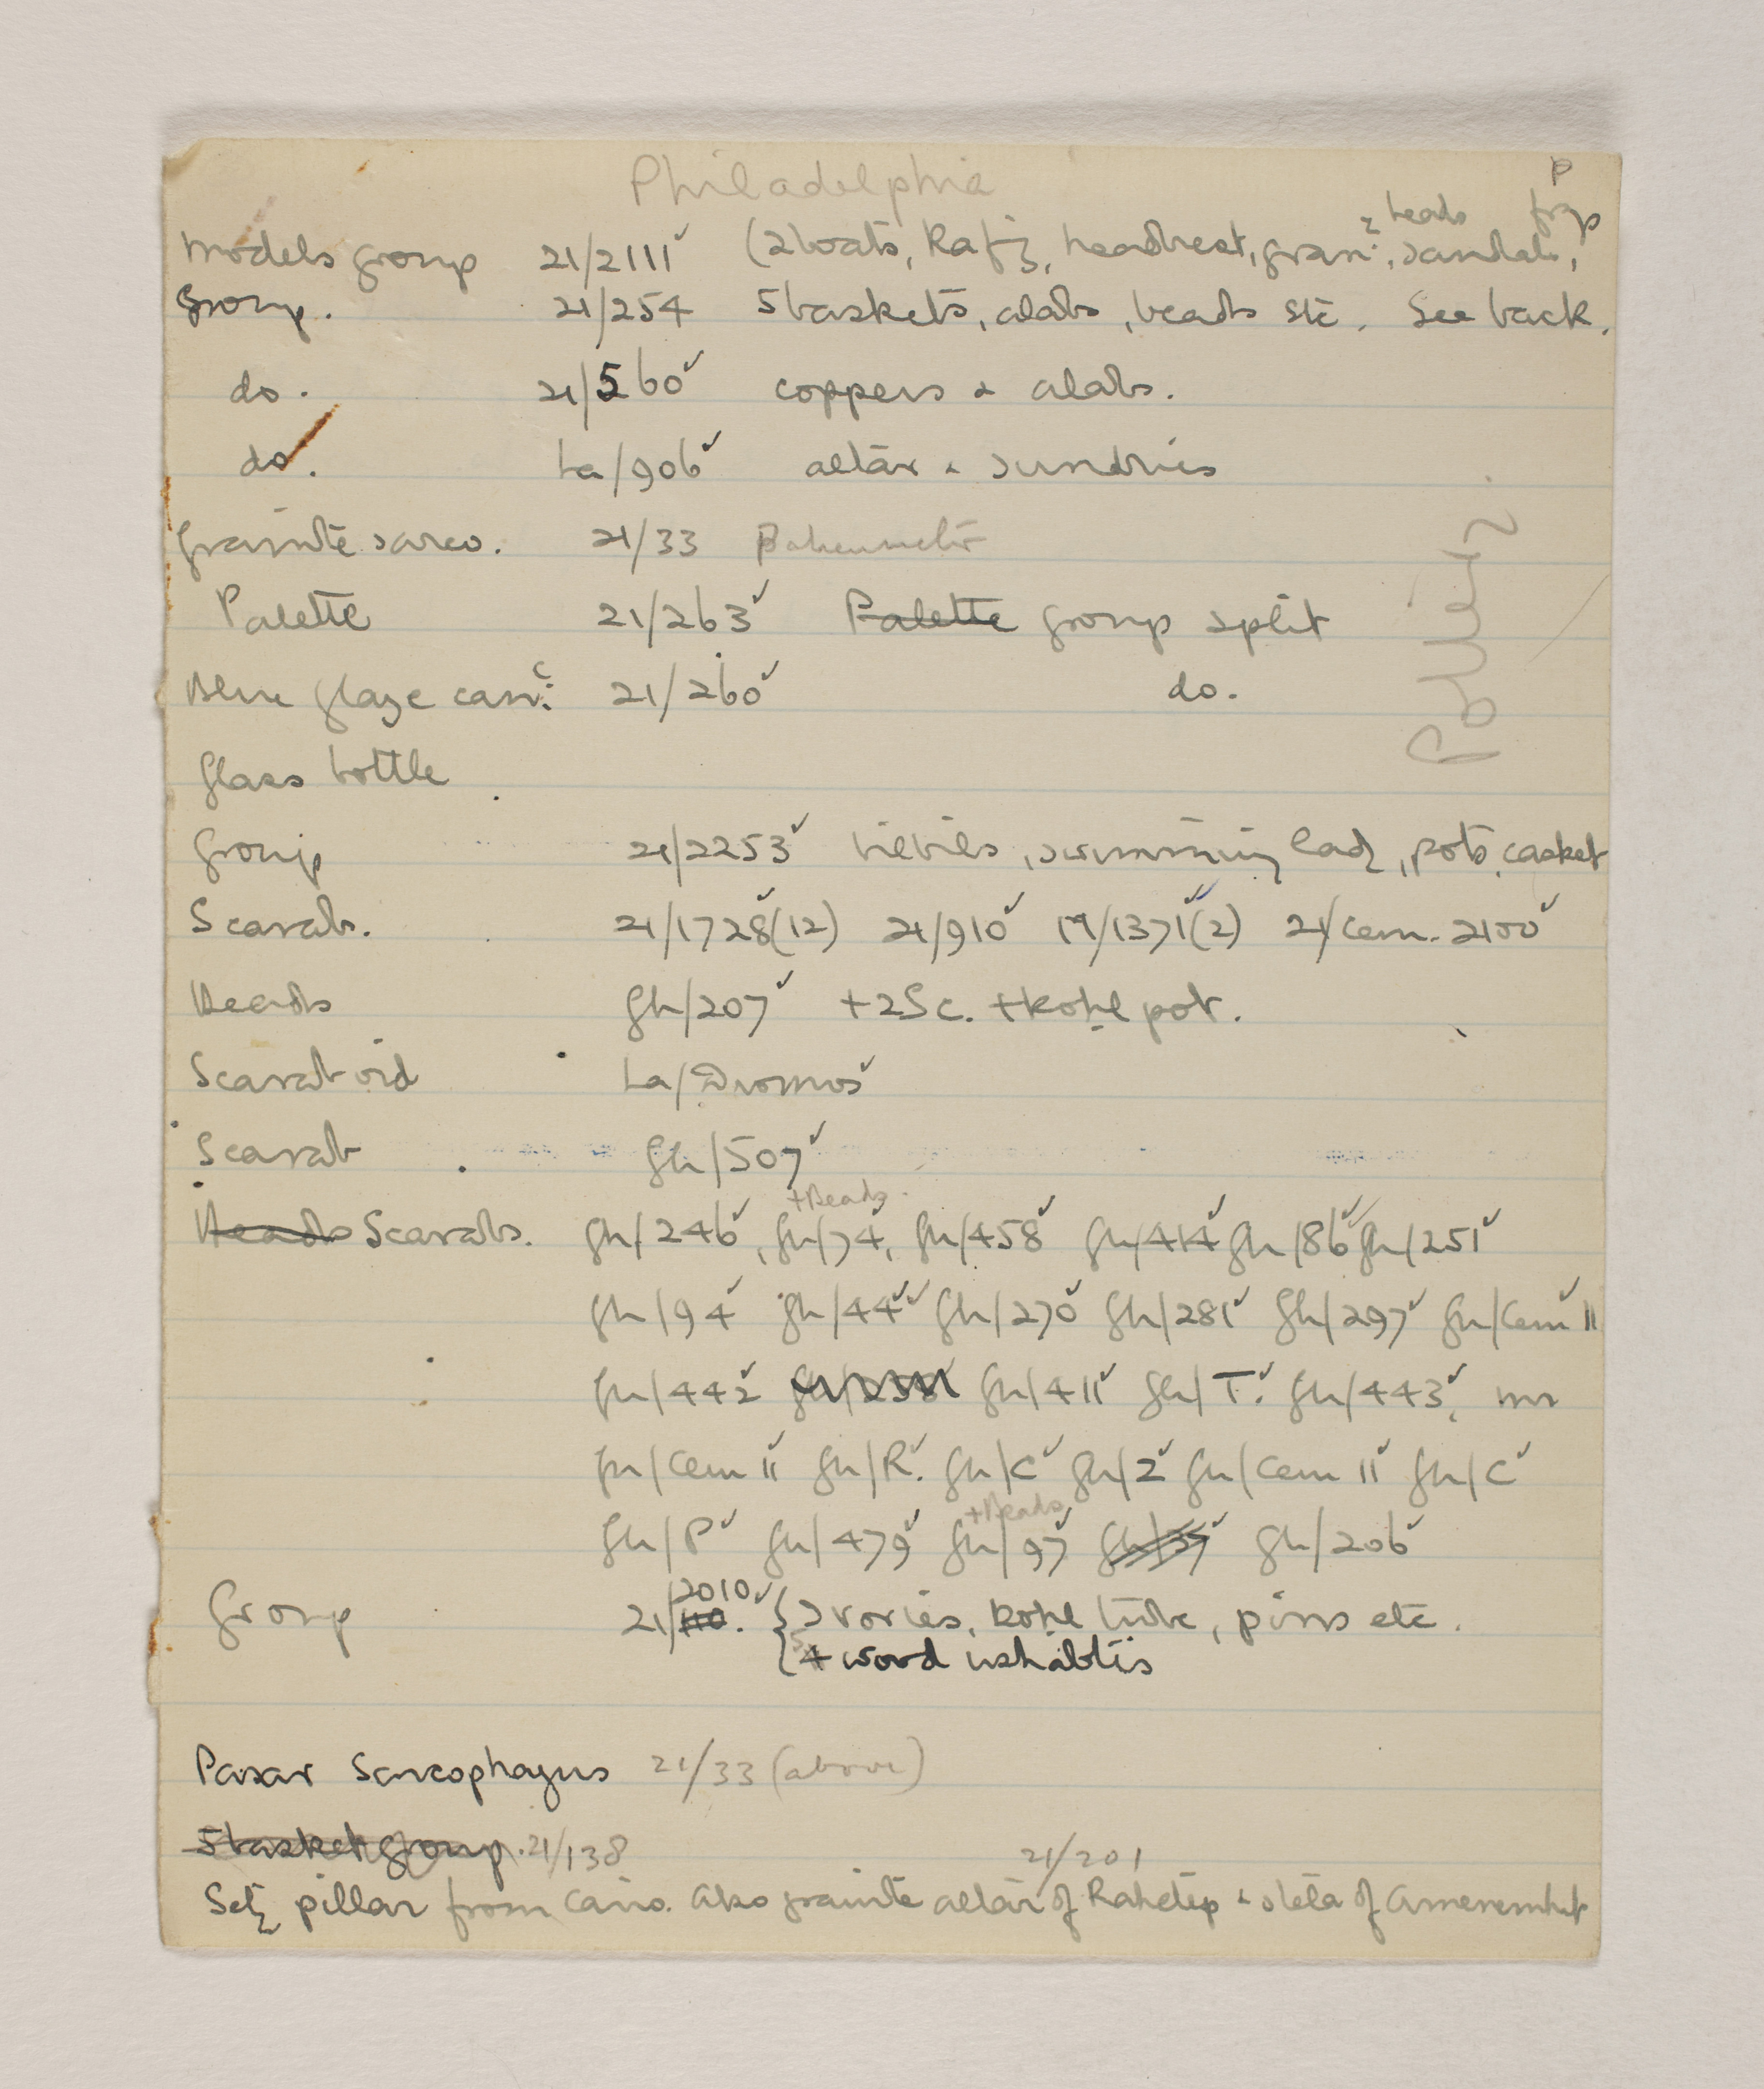 Philadelphia
P
2 heads frgs
Models group 21/2111 (2 boats, headrest, gran:, sandals,
Group. 21/254 5 baskets, alabs, beads etc. See back.
do. 21/560 coppers & alabs.
do. La/906 altar & sundries
Granite sarco. 21/33
Palette 21/263 Palette group split
Blue glaze can: 21/260 do.
Glass bottle
Group 21/2253 hilhils, swimming lady, pots, casket
Scarabs. 21/1728(12) 21/910 19/1371(2) 21/Cem. 2100
Beads Gh/207 +2Sc. + Kohl pot.
Scaraboid La/Dromos
Scarab Gh/507
+Beads.
Beads Scarabs. Gh/246, Gh/74, Gh/458 Gh/414 Gh/86 Gh/251
Gh/94 Gh/44 Gh/270 Gh/281 Gh/297 Gh/Cem 11
Gh/442 Gh/411 Gh/T. Gh/443,
Gh/Cem 11 Gh/R. Gh/C Gh/2 Gh/Cem 11 Gh/C
+Beads
Gh/P Gh/479 Gh/97 Gh/206
2010
Group 21/110. { Ivories, Kohl tube, pins etc.
4 wood ushabtis
Pasar Sarcophagus 21/33 (above)
5 basket group. 21/138
21/201
Sety pillar from Cairo. Also granite altar of Rahetep & stela of Amenemhet